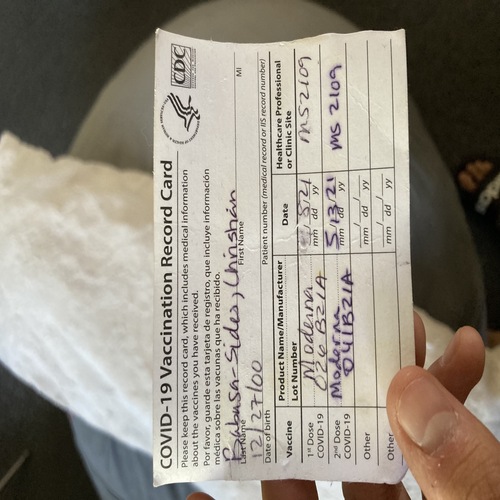 COVID-19 Vaccination Record Card
Please keep this record card, which includes medical information
about the vaccines you have received.
Por favor, guarde esta tarjeta de registro, que incluye información
médica sobre las vacunas que ha recibido.
CDC
Babusa-Sides, Christian
Last Name First Name MI
12/27/00
Date of birth Patient number (medical record or IIS record number)
Vaccine Product Name/Manufacturer Date Healthcare Professional
Lot Number or Clinic Site
1st Dose Moderna 21 MS2109
COVID-19 026B21A mm dd yy
2nd Dose Moderna 5/13/21 MS 2109
COVID-19 041B21A mm dd yy
Other __/__/__
mm dd yy
Other __/__/__
mm dd yy